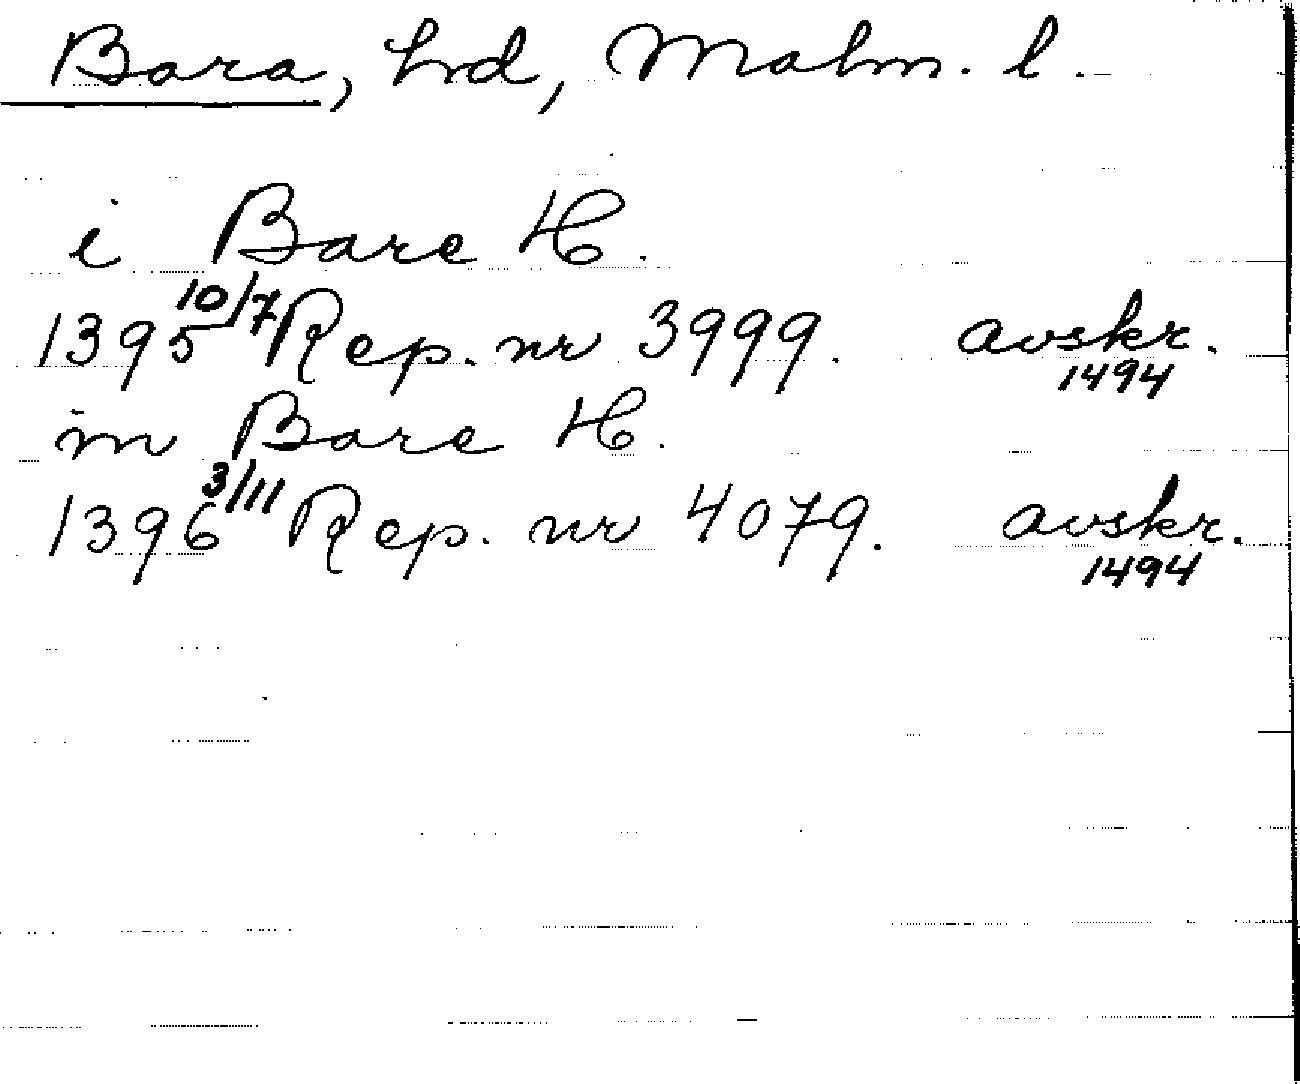 Bara, hrd, Malm. l.
i Bare H.
1395 10/7 Rep. nr 3999. avskr. 1494
in Bare H.
1396 3/11 Rep. nr 4079. avskr. 1494